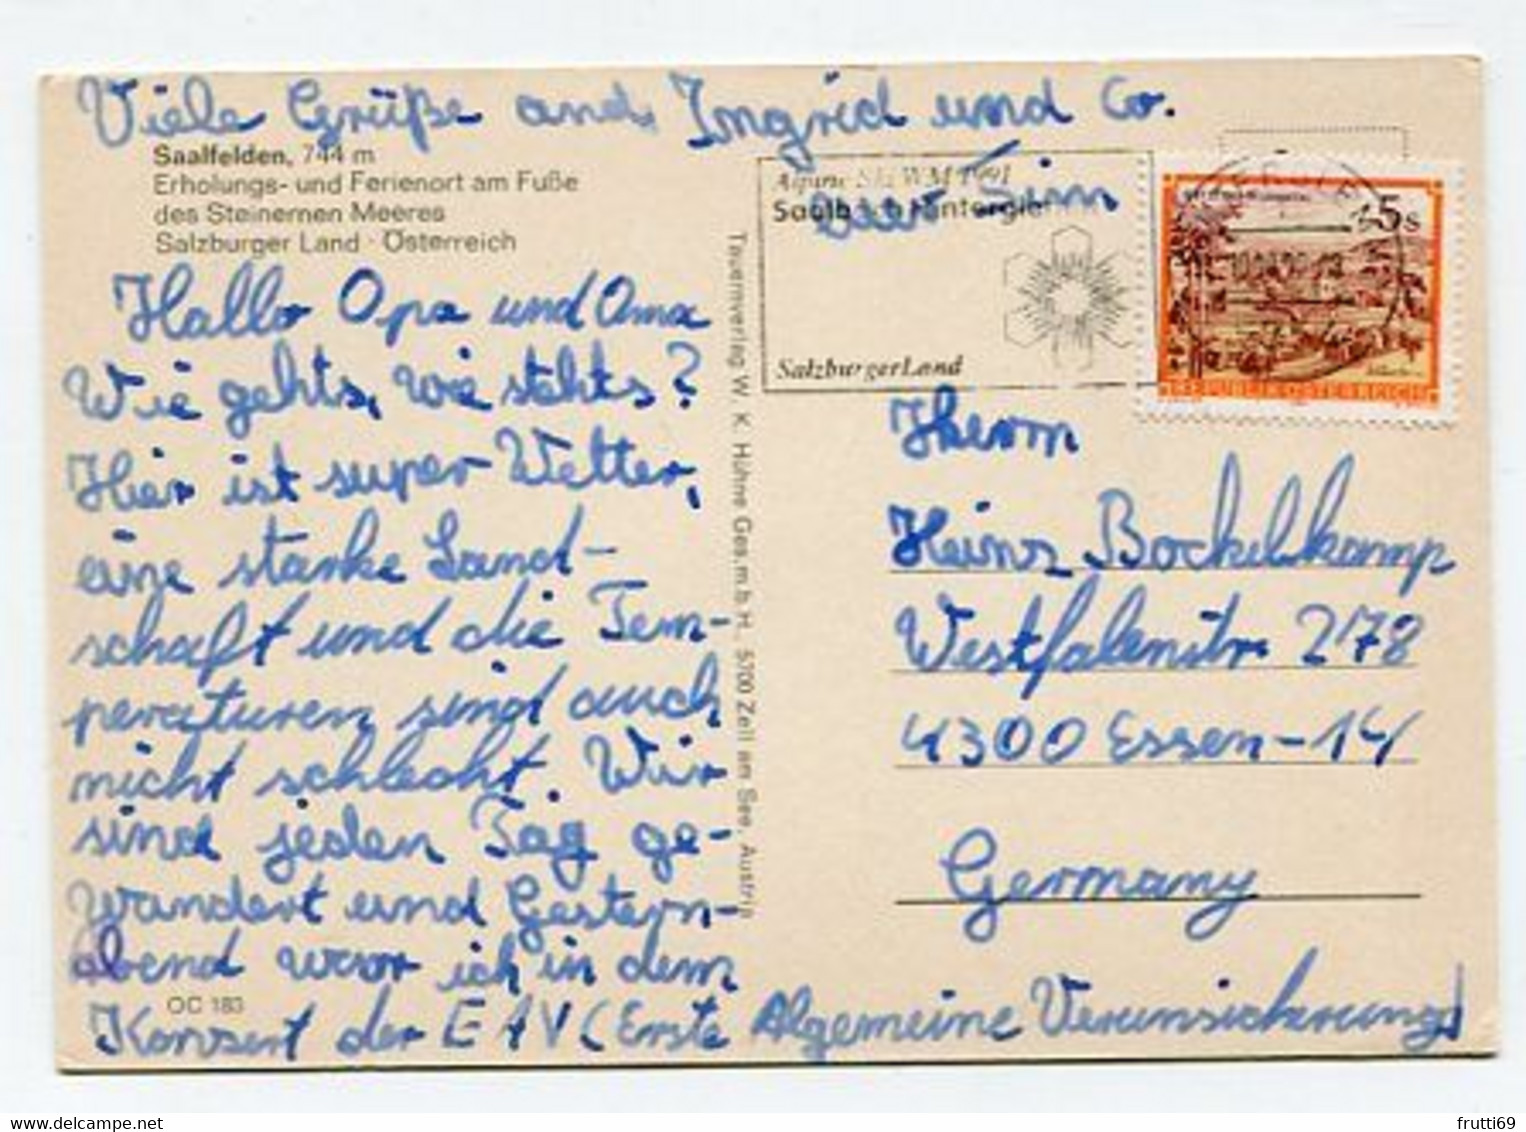 Viele Grüße and Ingrid und Co.
Saalfelden, 744 m
Erholungs- und Ferienort am Fuße
des Steinernen Meeres
Salzburger Land · Österreich
Hallo Opa und Oma
Wie gehts, wie stehts?
Hier ist super Wetter,
eine starke Land-
schaft und die Tem-
peraturen sind auch
nicht schlecht. Wir
sind jeden Tag ge-
wandert und Gestern-
abend war ich in dem
Konzert der EAV (Erste Algemeine Verunsicherung)
OC 183
Tauernverlag W. K. Hühne Ges.m.b.H., 5700 Zell am See, Austria
Alpine Ski WM 1991
Saalbach Hinterglemm
SalzburgerLand
5s
REPUBLIK ÖSTERREICH
Herrn
Heinz Bockelkamp
Westfalenstr. 278
4300 Essen-14
Germany
frutti69